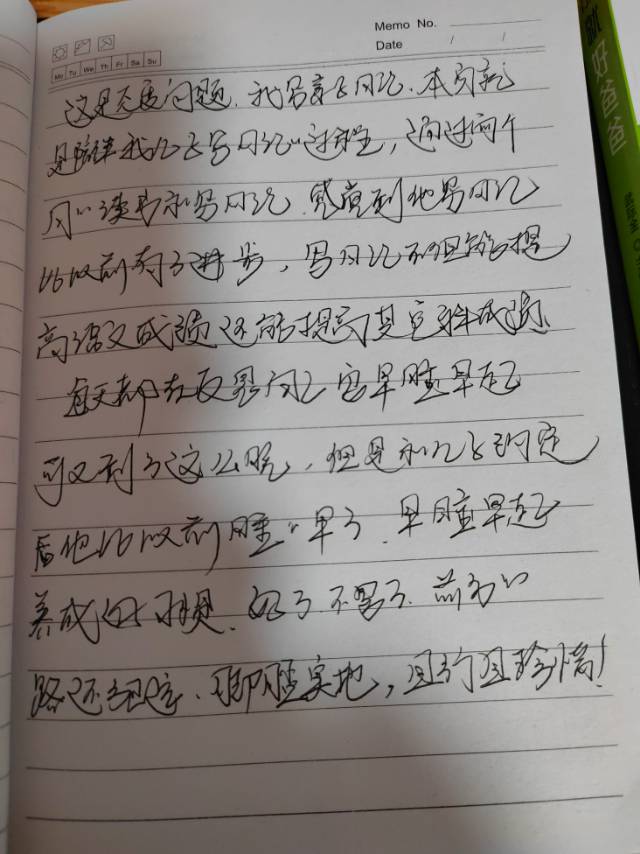 Memo No.
Date / /
Mo Tu We Th Fr Sa Su
好爸爸
这是态度问题，我写亲子日记，本质就
是陪伴我儿子写日记的过程，通过两个
月的读书和写日记，感觉到他写日记
比以前有了进步，写日记不但能提
高语文成绩还能提高其它科成绩
每天都在反思自己官早睡早起
可又到了这么晚，但是和儿子约定
后他比以前睡的早了，早睡早起
养成好习惯，好了不写了，前方的
路还很远，脚踏实地，且行且珍惜！